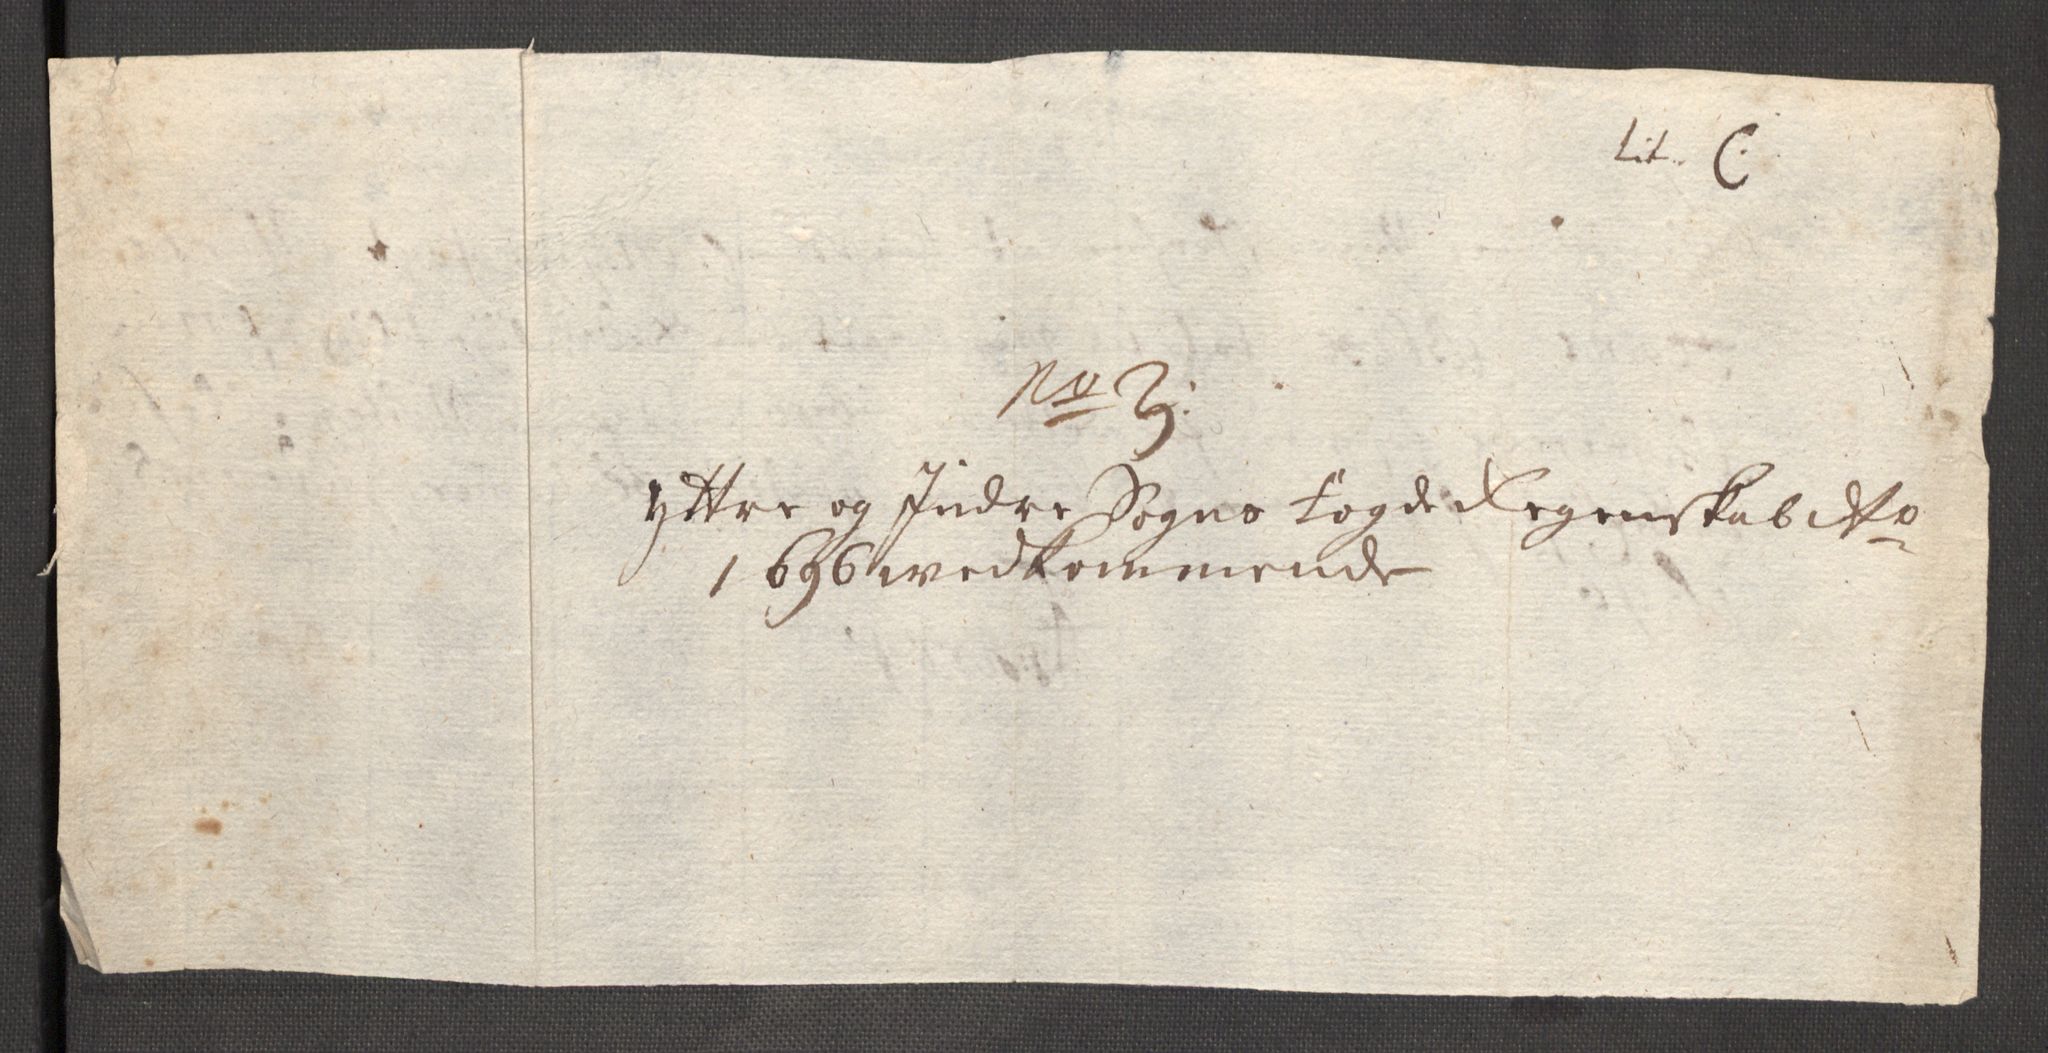 Lit. C:
No 3:
Yttre og Indre Sogns fogderegenskab Ao
1696 vedkommende